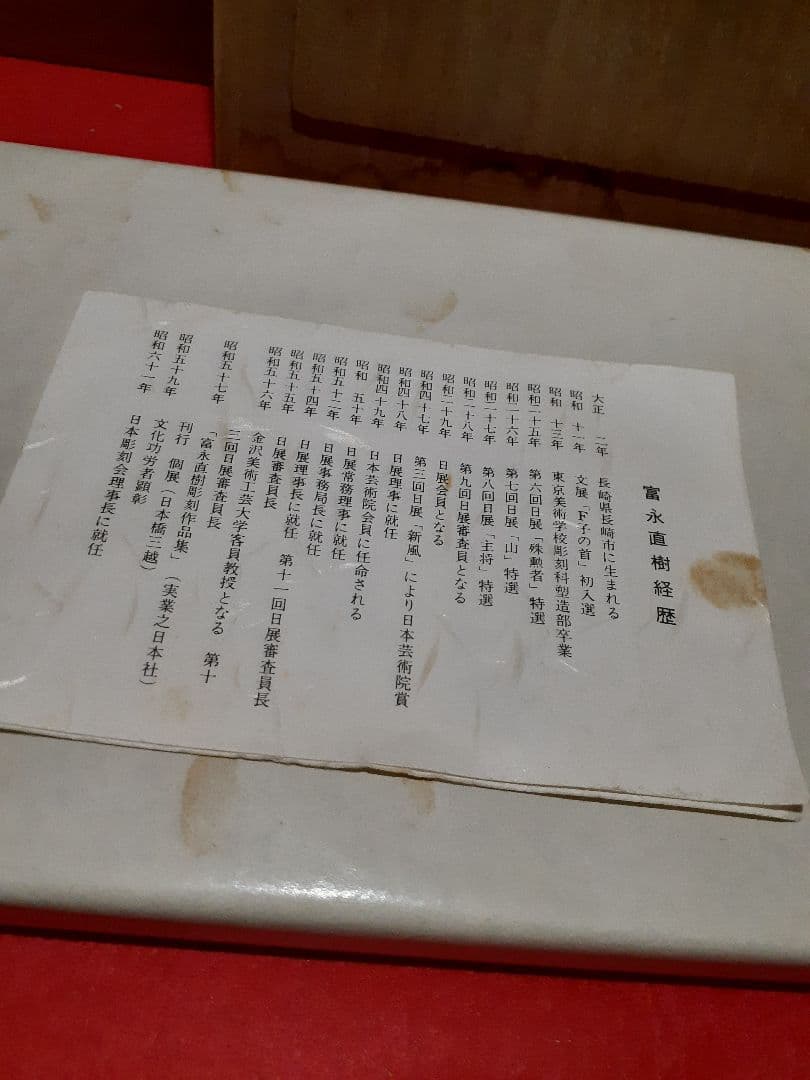 富永直樹経歴
大正　二年　長崎県長崎市に生まれる
昭和　十一年　文展「F子の首」初入選
昭和　十三年　東京美術学校彫刻科塑造部卒業
昭和二十五年　第六回日展「殊勲者」特選
昭和二十六年　第七回日展「山」特選
昭和二十七年　第八回日展「主将」特選
昭和二十八年　第九回日展審査員となる
昭和二十九年　日展会員となる
昭和四十七年　第三回日展「新風」により日本芸術院賞
昭和四十八年　日展理事に就任
昭和四十九年　日本芸術院会員に任命される
昭和　五十年　日展常務理事に就任
昭和五十二年　日展事務局長に就任
昭和五十四年　日展理事長に就任　第十一回日展審査員長
昭和五十五年　日展審査員長
昭和五十六年　金沢美術工芸大学客員教授となる　第十
三回日展審査員長
昭和五十七年　「富永直樹彫刻作品集」（実業之日本社）
刊行　個展（日本橋三越）
昭和五十九年　文化功労者顕彰
昭和六十一年　日本彫刻会理事長に就任